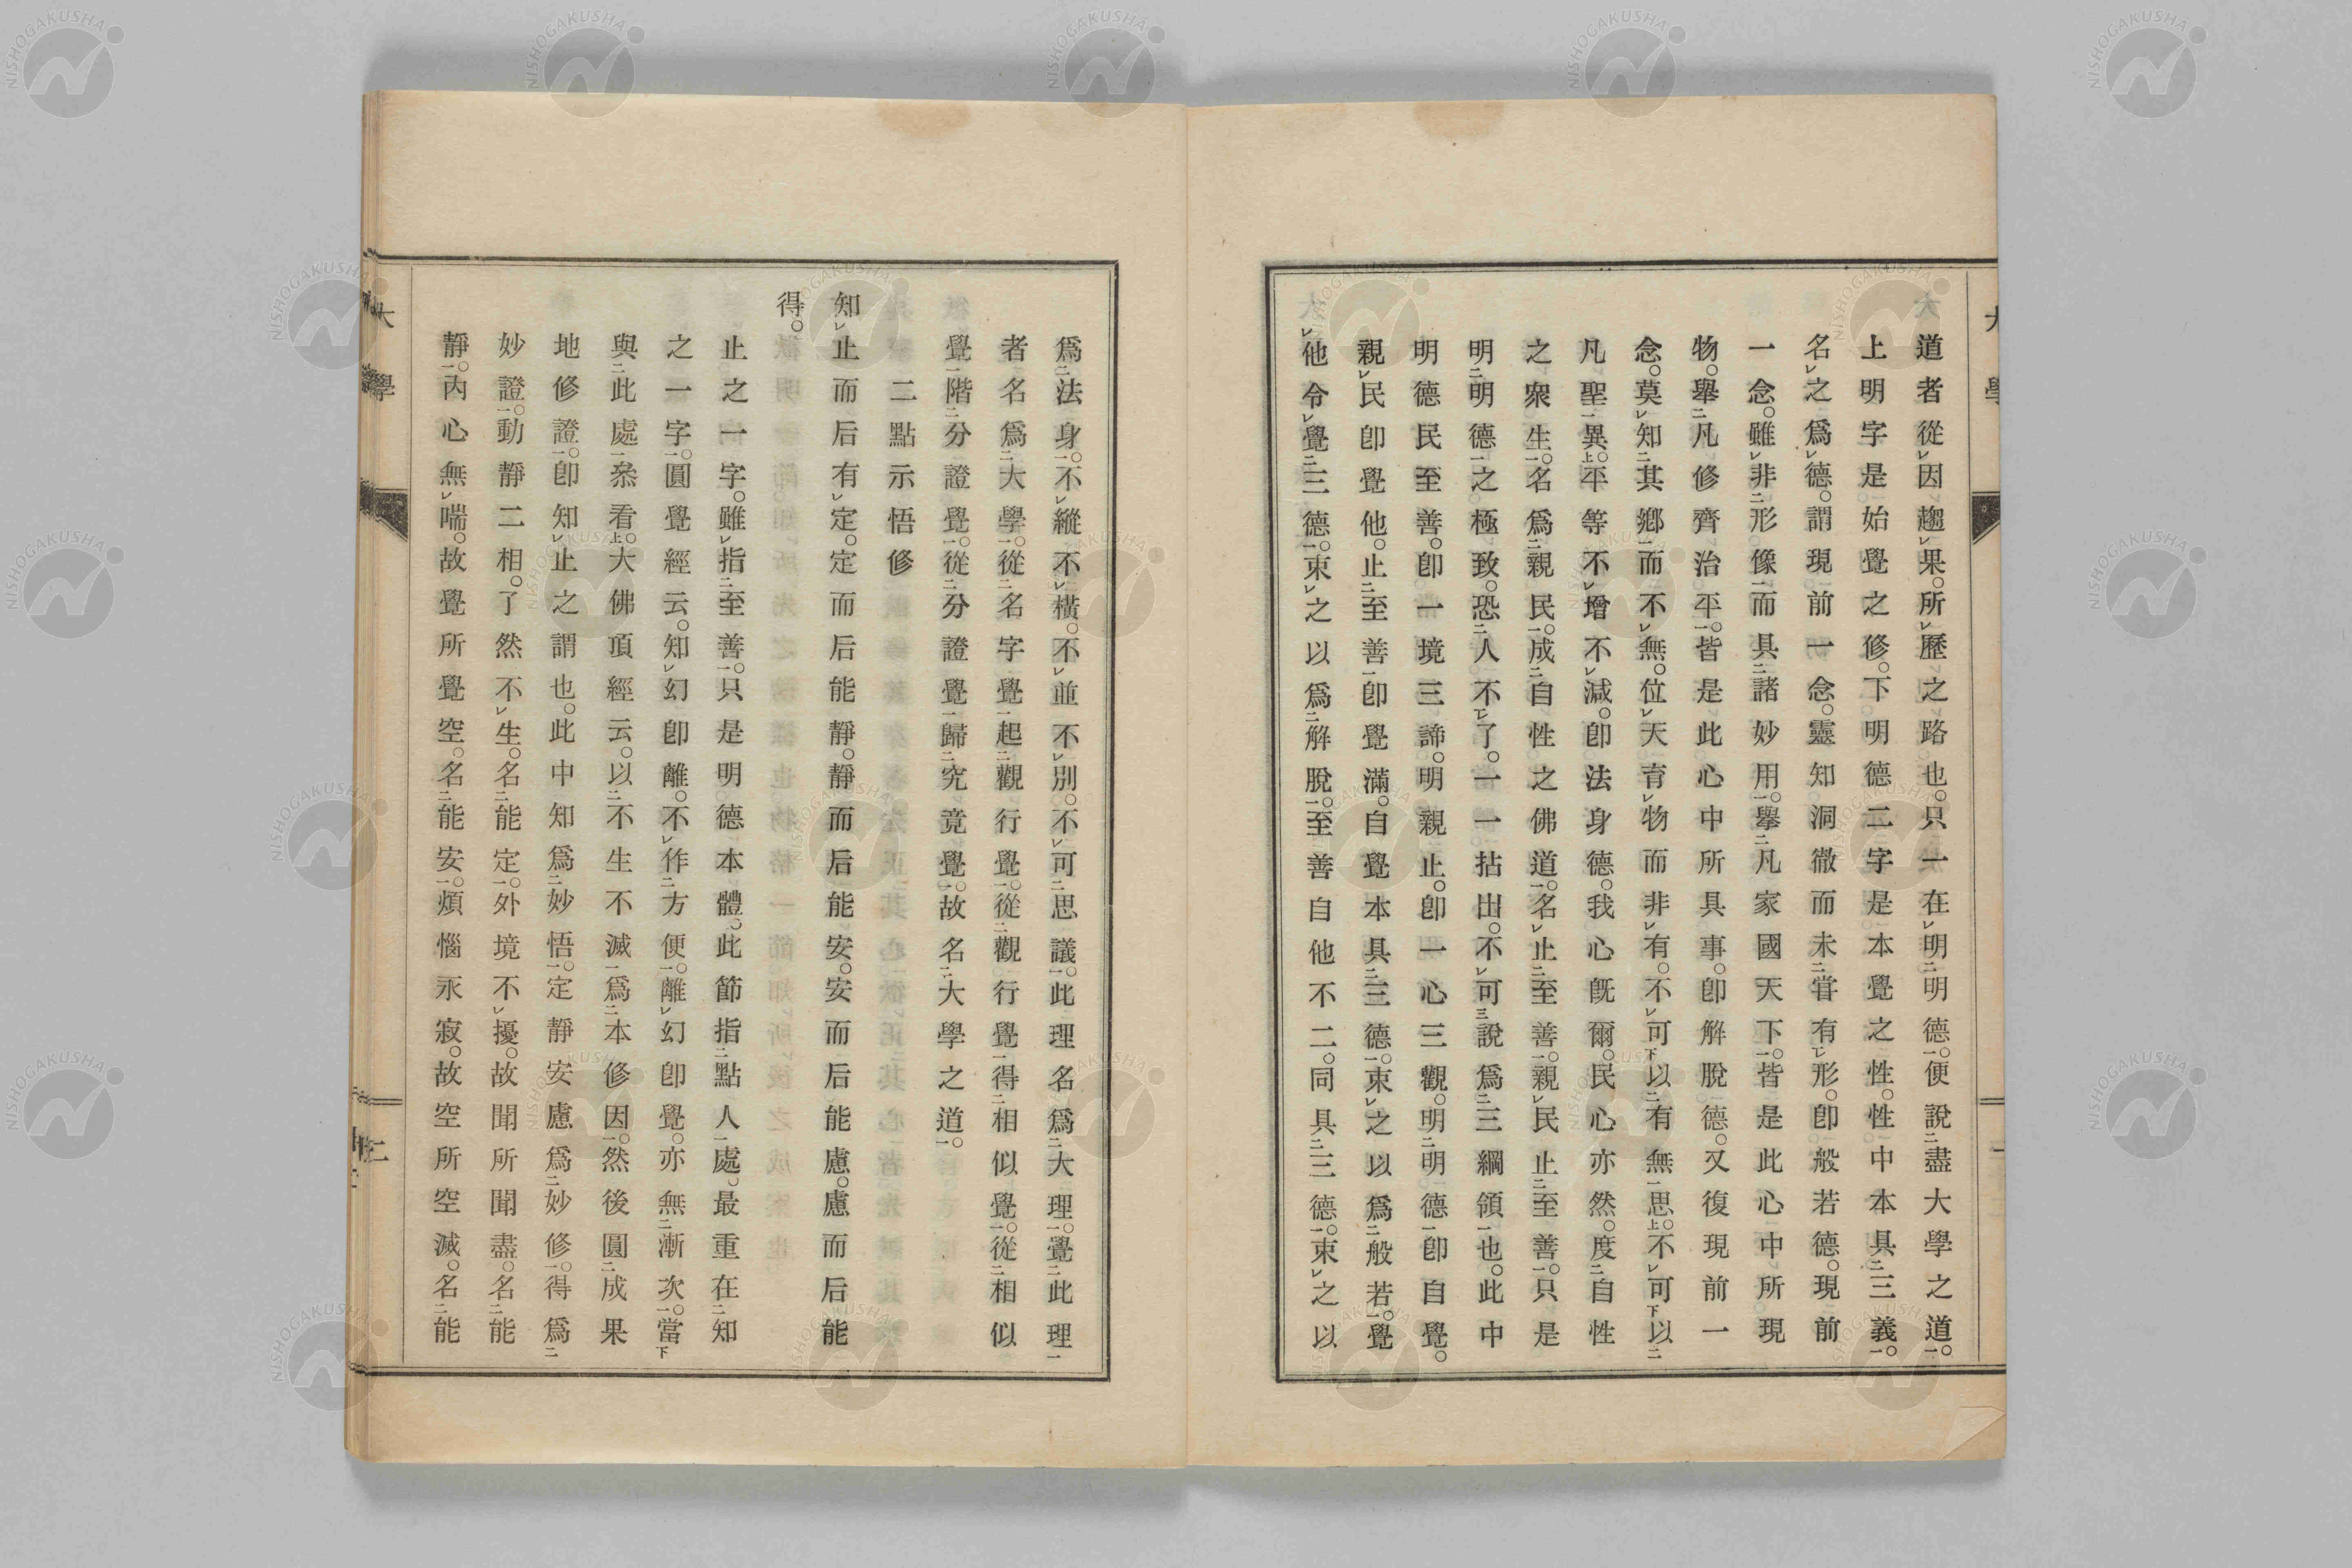 道者從因趨果。所歷之路也。只一在明明德。便說盡大學之道。
上明字是始覺之修。下明德二字是本覺之性。性中本具三義。
名之爲德。謂現前一念。靈知洞徹而未甞有形。卽般若德。現前
一念。雖非形像而具諸妙用。擧凡家國天下。皆是此心中所現
物。擧凡修齊治平。皆是此心中所具事。卽解脫德。又復現前一
念。莫知其鄕而不無。位天育物而非有。不可以有無思。不可以
凡聖異。平等不增不減。卽法身德。我心旣爾。民心亦然。度自性
之衆生。名爲親民。成自性之佛道。名止至善。親民止至善。只是
明明德之極致。恐人不了。一一拈出。不可說爲三綱領也。此中
明德民至善。卽一境三諦。明親止。卽一心三觀。明明德卽自覺。
親民卽覺他。止至善卽覺滿。自覺本具三德。束之以爲般若。覺
他令覺三德。束之以爲解脫。至善自他不二。同具三德。束之以
爲法身。不縱不橫。不並不別。不可思議。此理名爲大理。覺此理
者名爲大學。從名字覺起觀行覺。從觀行覺得相似覺。從相似
覺階分證覺。從分證覺歸究竟覺。故名大學之道。
二點示悟修
知止而后有定。定而后能靜。靜而后能安。安而后能慮。慮而后能
得。
止之一字。雖指至善。只是明德本體。此節指點人處。最重在知
之一字。圓覺經云。知幻卽離。不作方便。離幻卽覺。亦無漸次。當
與此處叅看。大佛頂經云。以不生不滅爲本修因。然後圓成果
地修證。卽知止之謂也。此中知爲妙悟。定靜安慮爲妙修。得爲
妙證。動靜二相。了然不生。名能定。外境不擾。故聞所聞盡。名能
靜。內心無喘。故覺所覺空。名能安。煩惱永寂。故空所空滅。名能
大學
二